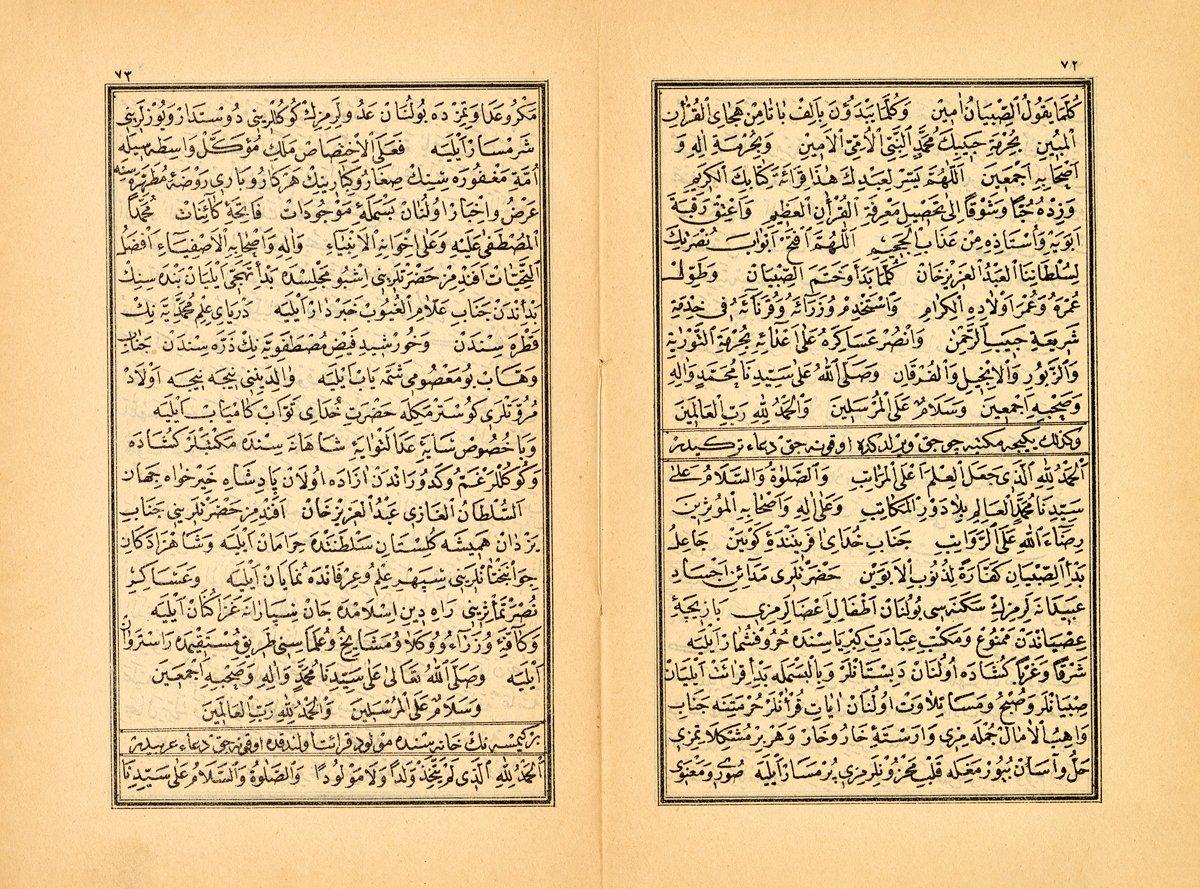 ٧٢
كُلَّمَا يَقُولُ الصِّبْيَانُ اٰمِينَ وَكُلَّمَا يَبْدَؤُنَ بِاَلِفْ بَا تَا مِنْ هِجَاىِ الْقُرْاٰنِ
الْمُبِينِ بِحُرْمَةِ حَبِيبِكَ مُحَمَّدٍ النَّبِىِّ الْاُمِّىِّ الْاَمِينِ وَبِحُرْمَةِ اٰلِهِ وَ
اَصْحَابِهِ اَجْمَعِينَ اَللّٰهُمَّ يَسِّرْ لِعَبْدِكَ هٰذَا قِرَائَةَ كِتَابِكَ الْكَرِيمِ
وَزِدْهُ حُبًّا وَشَوْقًا اِلٰى تَحْصِيلِ مَعْرِفَةِ الْقُرْاٰنِ الْعَظِيمِ وَاعْتِقْ رَقَبَةَ
اَبَوَيْهِ وَاُسْتَاذِهِ مِنْ عَذَابِ الْجَحِيمِ اَللّٰهُمَّ افْتَحْ اَبْوَابَ نُصْرَتِكَ
لِسُلْطَانِنَا الْعَبْدُ الْعَزِيزْ خَانْ كُلَّمَا بَدَأَ وَخَتَمَ الصِّبْيَانُ وَطَوِّلْ
عُمْرَهُ وَعُمْرَ اَوْلَادِهِ الْكِرَامِ وَاسْتَخْدِمْ وُزَرَائَهُ وَقُرَنَائَهُ فِى خِدْمَةِ
شَرِيعَةِ حَبِيبِ الرَّحْمٰنِ وَانْصُرْ عَسَاكِرَهُ عَلٰى اَعْدَائِهِ بِحُرْمَةِ التَّوْرٰيةِ
وَالزَّبُورِ وَالْاِنْجِيلِ وَالْفُرْقَانِ وَصَلَّى اللّٰهُ عَلٰى سَيِّدِنَا مُحَمَّدٍ وَاٰلِهِ
وَصَحْبِهِ اَجْمَعِينَ وَسَلَامٌ عَلَى الْمُرْسَلِينَ وَالْحَمْدُ لِلّٰهِ رَبِّ الْعَالَمِينَ
وكذلك يكيجه مكتبه چوجق ويرلدكده اوقونه جق دعاء تركيدر
اَلْحَمْدُ لِلّٰهِ الَّذِى جَعَلَ الْعِلْمَ اَعْلَى الْمَرَاتِبِ وَالصَّلٰوةُ وَالسَّلَامُ عَلٰى
سَيِّدِنَا مُحَمَّدٍ الْعَالِمِ بِلَا دَوْرِ الْمَكَاتِبِ وَعَلٰى اٰلِهِ وَاَصْحَابِهِ الْمُؤْثِرِينَ
رِضَاءَ اللّٰهِ عَلَى الرَّوَاتِبِ جَنَابِ خُدَاىِ اٰفَرِينَنْدَهٔ كَوْنَيْنِ جَاعِلُ
بَدْأِ الصِّبْيَانِ كَفَّارَةً لِذُنُوبِ الْاَبَوَيْنِ حَضْرَتْلَرِى مَدَائِنِ اَجْسَادِ
عَبِيدَانَه لَرِمِزِكْ سَكَنَه سِى بُولُنَانْ اَطْفَالِ اَعْضَالَرِمِزِى بَازِيچَهٔ
عِصْيَانْدَنْ مَمْنُوعْ وَمَكْتَبِ عِبَادَتِ كِبْرِيَاسِنْدَه حُرُوفْشُمَارْ اَيْلِيَه
شَرْقًا وَغَرْبًا كُشَادَه اُولُنَانْ دَبِسْتَانْلَرْ وَبِالْبَسْمَلَه بَدْأِ قِرَائَتْ اَيْلِيَانْ
صِبْيَانْلَرْ وَصُبْحُ وَمَسَا تِلَاوَتْ اُولُنَانْ اٰيَاتِ قُرْاٰنْلَرْ حُرْمَتِنَه جَنَابِ
وَاهِبُ الْاٰمَالْ جُمْلَه مِزِى وَارَسْتَهٔ خَارُ وَخَارْ وَهَرْ بِرْ مُشْكِلَاتِمِزِى
حَلُّ وَاٰسَانْ بُيُورْمَغِلَه قَلْبِ مَحْزُونْلَرِمِزِى پُرْمَسَارْ اَيْلِيَه صُورِى وَمَعْنَوِى
٧٣
مَكْرُ وَعَدَاوَتِمِزْدَه بُولُنَانْ عَدُولَرِمِزِكْ كُوكُلْلَرِينِى دُوسْتْدَارْ وَيُوزْلَرِينِى
شَرْمْسَارْ اَيْلِيَه فَعَلَى الْاِخْتِصَاصْ مَلَكِ مُؤَكَّلْ وَاسِطَه سِيلَه
اُمَّةِ مَغْفُورَه سِنِكْ صِغَارُ وَكِبَارِينِكْ هَرْ كَارُ وَبَارِى رَوْضَهٔ مُطَهَّرَه سِنَه
عَرْضُ وَاِخْبَارْ اُولُنَانْ بَسْمَلَهٔ مَوْجُودَاتْ فَاتِحَهٔ كَائِنَاتْ مُحَمَّدًا
الْمُصْطَفٰى عَلَيْهِ وَعَلٰى اِخْوَانِهِ الْاَنْبِيَاءِ وَاٰلِهِ وَاَصْحَابِهِ الْاَصْفِيَاءِ اَفْضَلُ
التَّحِيَّاتْ اَفَنْدِمِزْ حَضْرَتْلَرِينِى اِشْبُو مَجْلِسْدَه بَدْأِ تَهَجِّى اَيْلِيَانْ بَنْدَه سِنِكْ
بَدْأَنْدَنْ جَنَابِ عَلَّامُ الْغُيُوبْ خَبَرْدَارْ اَيْلِيَه دَرْيَاىِ عِلْمِ مُحَمَّدِيَّه نِكْ
قَطْرَه سِنْدَنْ وَخُورْشِيدِ فَيْضِ مُصْطَفَوِيَّه نِكْ ذَرَّه سِنْدَنْ جَنَابِ
وَهَّابْ بُو مَعْصُومِى شَمَّه يَابْ اَيْلِيَه وَالِدَيْنِنِى نِيجَه نِيجَه اَوْلَادْ
مُرُوَّتْلَرِى كُوسْتَرْمَكِلَه حَضْرَتِ خُدَاىِ تَوَّابْ كَامْيَابْ اَيْلِيَه
وَبَاخُصُوصْ سَايَهٔ عَدَالَتْوَايَهٔ شَاهَانَه سِنْدَه مَكْتَبْلَرْ كُشَادَه
وَكُوكُلْلَرْ غَمُّ وَكَدُورَاتْدَنْ اٰزَادَه اُولَانْ پَادِشَاهِ خَيْرْخَواهِ جِهَانْ
اَلسُّلْطَانُ الْغَازِى عَبْدُ الْعَزِيزْ خَانْ اَفَنْدِمِزْ حَضْرَتْلَرِينِى جَنَابِ
يَزْدَانْ هَمِيشَه كُلِسْتَانِ سَلْطَنَتِنْدَه خِرَامَانْ اَيْلِيَه وَشَاهْزَادَكَانِ
جَوَانْبَخْتَانْلَرِينِى سِپِهْرِ عِلْمُ وَعِرْفَانْدَه نُمَايَانْ اَيْلِيَه وَعَسَاكِرِ
نُصْرَتْمَأْثَرِينِى رَاهِ دِينِ اِسْلَامْدَه جَانْ سِپَارَانَه غَزَا كُنَانْ اَيْلِيَه
وَكَافَّهٔ وُزَرَاءُ وَوُكَلَاءُ وَمَشَايِخُ وَعُلَمَاسِنِى طَرِيقِ مُسْتَقِيمْدَه رَاسْتْرَوَانْ
اَيْلِيَه وَصَلَّى اللّٰهُ تَعَالٰى عَلٰى سَيِّدِنَا مُحَمَّدٍ وَاٰلِهِ وَصَحْبِهِ اَجْمَعِينَ
وَسَلَامٌ عَلَى الْمُرْسَلِينَ وَالْحَمْدُ لِلّٰهِ رَبِّ الْعَالَمِينَ
بر كيمسه نك خانه سنده مولود قرائت اولندقده اوقونه جق دعاء عربيدر
اَلْحَمْدُ لِلّٰهِ الَّذِى لَمْ يَتَّخِذْ وَلَدًا وَلَا مَوْلُودًا وَالصَّلٰوةُ وَالسَّلَامُ عَلٰى سَيِّدِنَا